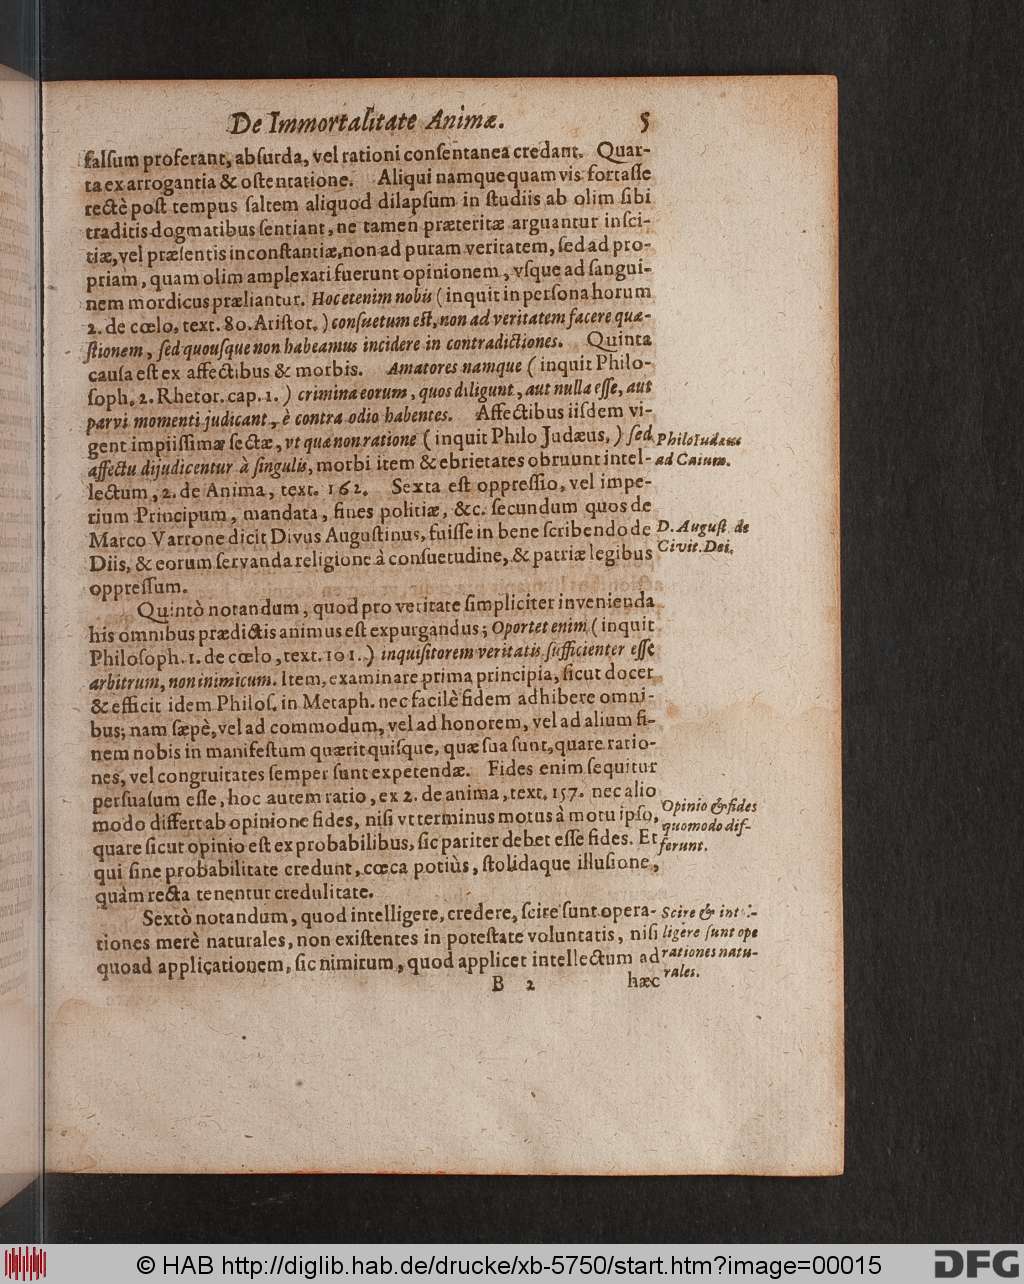 De Immortalitate Animæ. 5
falſum proferant, abſurda, vel rationi conſentanea credant. Quar-
ta ex arrogantia & oſtentatione. Aliqui namque quam vis fortaſſe
rectè poſt tempus ſaltem aliquod dilapſum in ſtudiis ab olim ſibi
traditis dogmatibus ſentiant, ne tamen præteritæ arguantur inſci-
tiæ, vel præſentis inconſtantiæ, non ad puram veritatem, ſed ad pro-
priam, quam olim amplexati fuerunt opinionem, vſque ad ſangui-
nem mordicus præliantur. Hoc etenim nobis (inquit in perſona horum
2. de cœlo, text. 80. Ariſtot.) conſuetum eſt, non ad veritatem facere quæ-
ſtionem, ſed quouſque non habeamus incidere in contradictiones. Quinta
cauſa eſt ex affectibus & morbis. Amatores namque (inquit Philo-
ſoph. 2. Rhetor. cap. 1.) crimina eorum, quos diligunt, aut nulla eſſe, aut
parvi momenti judicant, è contra odio habentes. Affectibus iiſdem vi-
gent impiiſſimæ ſectæ, vt quæ non ratione (inquit Philo Judæus,) ſed
affectu dijudicentur à ſingulis, morbi item & ebrietates obruunt intel-
lectum, 2. de Anima, text. 162. Sexta eſt oppreſſio, vel impe-
rium Principum, mandata, fines politiæ, &c. ſecundum quos de
Marco Varrone dicit Divus Auguſtinus, fuiſſe in bene ſcribendo de
Diis, & eorum ſervanda religione à conſuetudine, & patriæ legibus
oppreſſum.
Philo Iudæus
ad Caium.
D. Auguſt. de
Civit. Dei.
Quintò notandum, quod pro veritate ſimpliciter invenienda
his omnibus prædictis animus eſt expurgandus; Oportet enim (inquit
Philoſoph. 1. de cœlo, text. 101.) inquiſitorem veritatis ſufficienter eſſe
arbitrum, non inimicum. Item, examinare prima principia, ſicut docet
& efficit idem Philoſ. in Metaph. nec facilè fidem adhibere omni-
bus; nam ſæpè, vel ad commodum, vel ad honorem, vel ad alium fi-
nem nobis in manifeſtum quærit quiſque, quæ ſua ſunt, quare ratio-
nes, vel congruitates ſemper ſunt expetendæ. Fides enim ſequitur
perſuaſum eſſe, hoc autem ratio, ex 2. de anima, text. 157. nec alio
modo differt ab opinione fides, niſi vt terminus motus à motu ipſo,
quare ſicut opinio eſt ex probabilibus, ſic pariter debet eſſe fides. Et
qui ſine probabilitate credunt, cœca potiùs, ſtolidaque illuſione,
quàm recta tenentur credulitate.
Opinio & fides
quomodo dif-
ferunt.
Sextò notandum, quod intelligere, credere, ſcire ſunt opera-
tiones merè naturales, non exiſtentes in poteſtate voluntatis, niſi
quoad applicationem, ſic nimirum, quod applicet intellectum ad
Scire & int
ligere ſunt ope
rationes natu-
rales.
B 2 hæc
© HAB http://diglib.hab.de/drucke/xb-5750/start.htm?image=00015
DFG